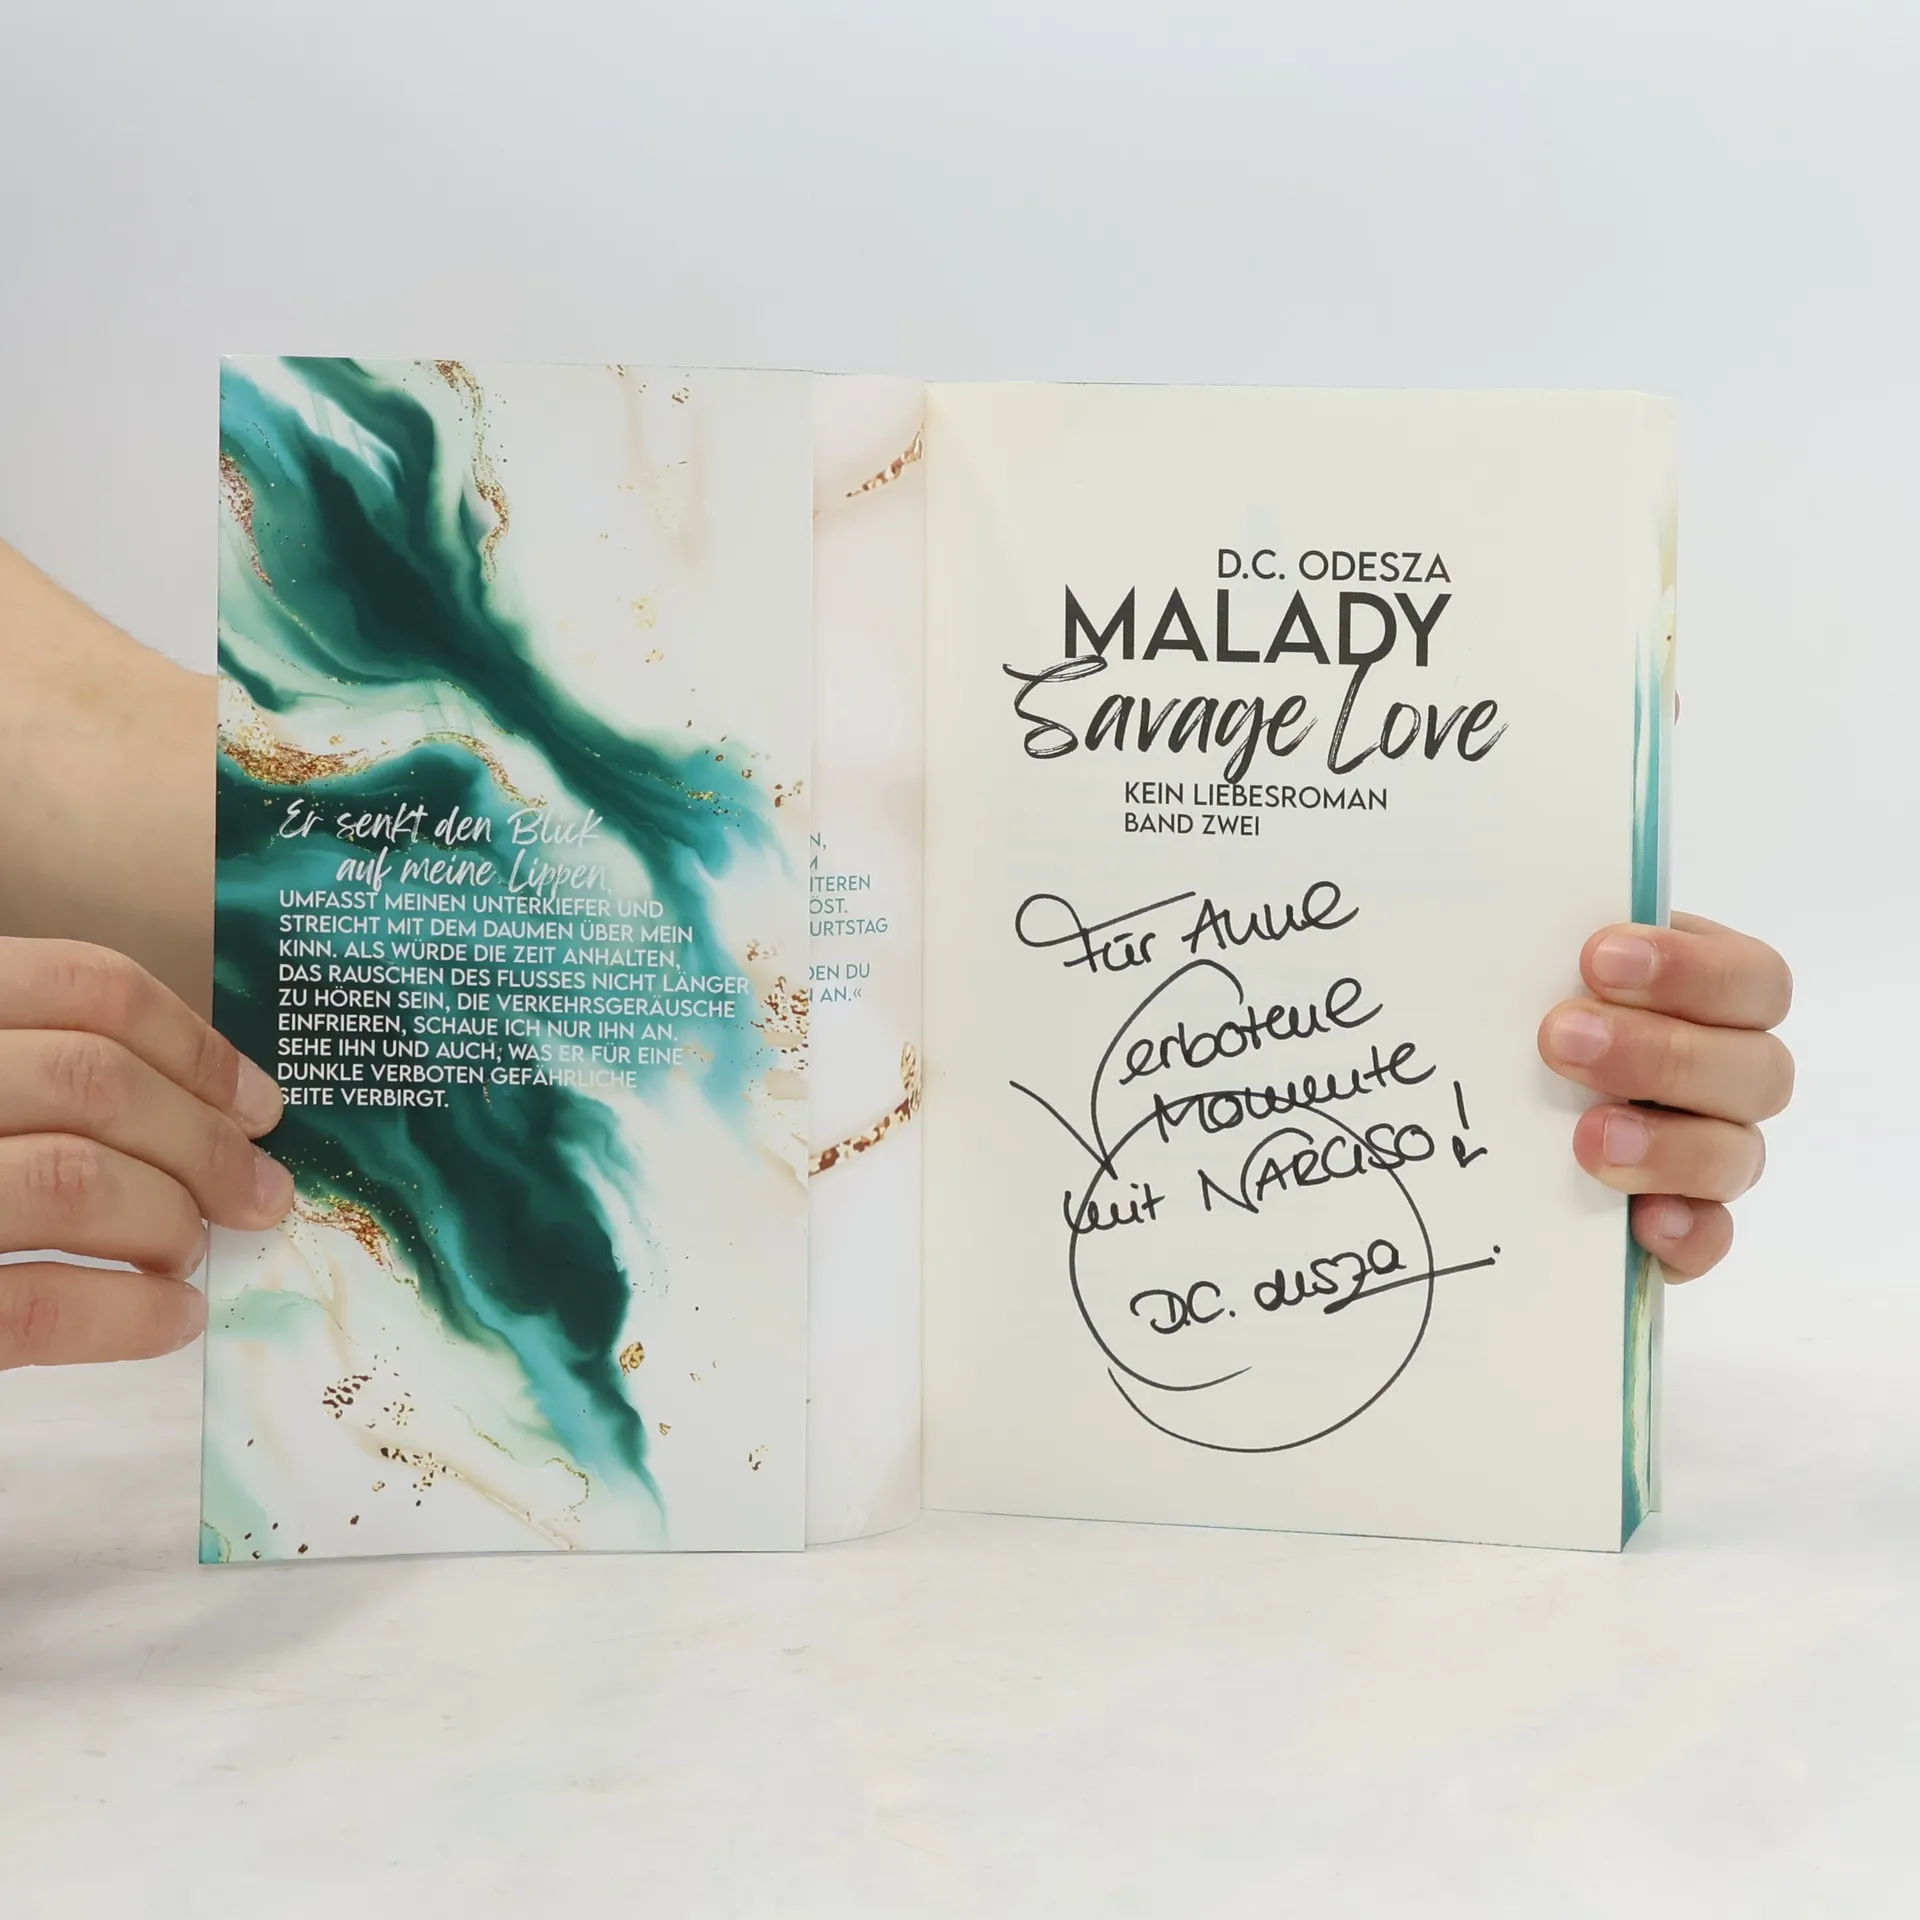 Er senkt den Blick
auf meine Lippen,
UMFASST MEINEN UNTERKIEFER UND
STREICHT MIT DEM DAUMEN ÜBER MEIN
KINN. ALS WÜRDE DIE ZEIT ANHALTEN,
DAS RAUSCHEN DES FLUSSES NICHT LÄNGER
ZU HÖREN SEIN, DIE VERKEHRSGERÄUSCHE
EINFRIEREN, SCHAUE ICH NUR IHN AN.
SEHE IHN UND AUCH, WAS ER FÜR EINE
DUNKLE VERBOTEN GEFÄHRLICHE
SEITE VERBIRGT.
N,
M
ITEREN
ÖST.
URTSTAG
DEN DU
N AN.«
D.C. ODESZA
MALADY
Savage Love
KEIN LIEBESROMAN
BAND ZWEI
Für Anne
Verbotene
Momente
mit NARCISO!
D.C. Odesza